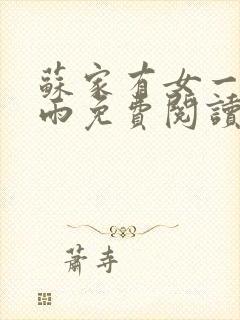 蘇家有女一
雨免費閱讀
蕭寺